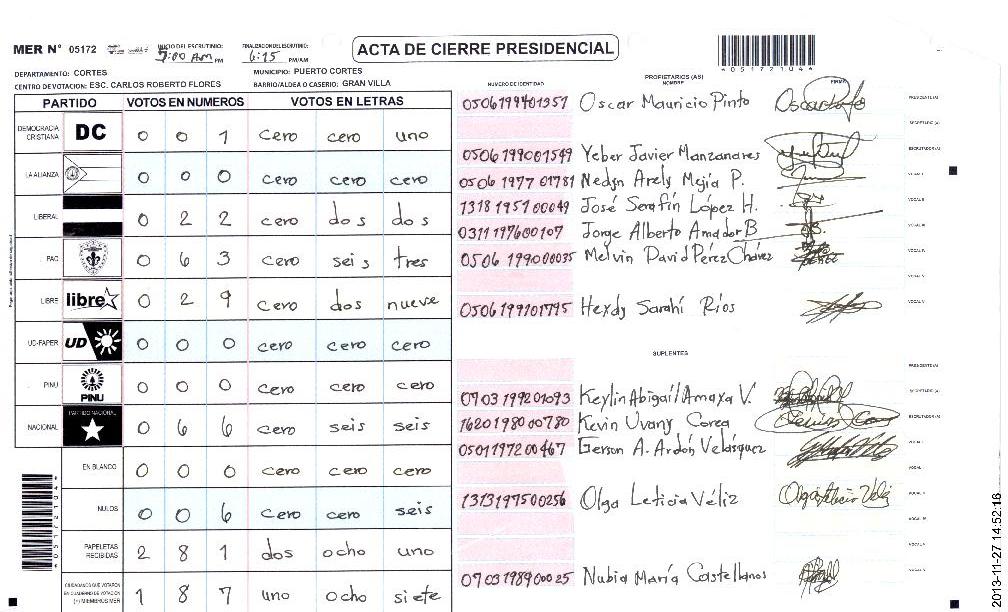 MER N° 05172 INICIO DEL ESCRUTINIO: 5:00 AM PM/AM FINALIZACION DEL ESCRUTINIO: 6:15 PM/AM ACTA DE CIERRE PRESIDENCIAL
*051721044*
DEPARTAMENTO: CORTES MUNICIPIO: PUERTO CORTES
CENTRO DE VOTACION: ESC. CARLOS ROBERTO FLORES BARRIO/ALDEA O CASERIO: GRAN VILLA
PARTIDO VOTOS EN NUMEROS VOTOS EN LETRAS
DEMOCRACIA CRISTIANA DC 0 0 1 cero cero uno
LA ALIANZA 0 0 0 cero cero cero
LIBERAL 0 2 2 cero dos dos
PAC 0 6 3 cero seis tres
LIBRE libre 0 2 9 cero dos nueve
UD-FAPER UD 0 0 0 cero cero cero
PINU PINU 0 0 0 cero cero cero
NACIONAL PARTIDO NACIONAL 0 6 6 cero seis seis
EN BLANCO 0 0 0 cero cero cero
NULOS 0 0 6 cero cero seis
PAPELETAS RECIBIDAS 2 8 1 dos ocho uno
CIUDADANOS QUE VOTARON EN CUADERNO DE VOTACION (+) MIEMBROS MER 1 8 7 uno ocho siete
NUMERO DE IDENTIDAD PROPIETARIOS (AS) NOMBRE FIRMA
0506199401357 Oscar Mauricio Pinto PRESIDENTE (A)
SECRETARIO (A)
0506199001549 Yeber Javier Manzanares ESCRUTADOR (A)
0506197701781 Nedyn Arely Mejía P. VOCAL I
1318195700049 José Serafín López H. VOCAL II
0311197600107 Jorge Alberto Amador B VOCAL III
0506199000035 Melvin David Pérez Chávez VOCAL IV
0506199101795 Hexdy Sarahí Ríos VOCAL V
SUPLENTES
PRESIDENTE (A)
0703199201093 Keylin Abigail Amaya V. SECRETARIO (A)
1620198000780 Kevin Uvany Corea ESCRUTADOR (A)
0501197200467 Gerson A. Ardón Velásquez VOCAL I
1313197500256 Olga Leticia Véliz
0703198900025 Nubia María Castellanos VOCAL V
2013-11-27 14:52:16